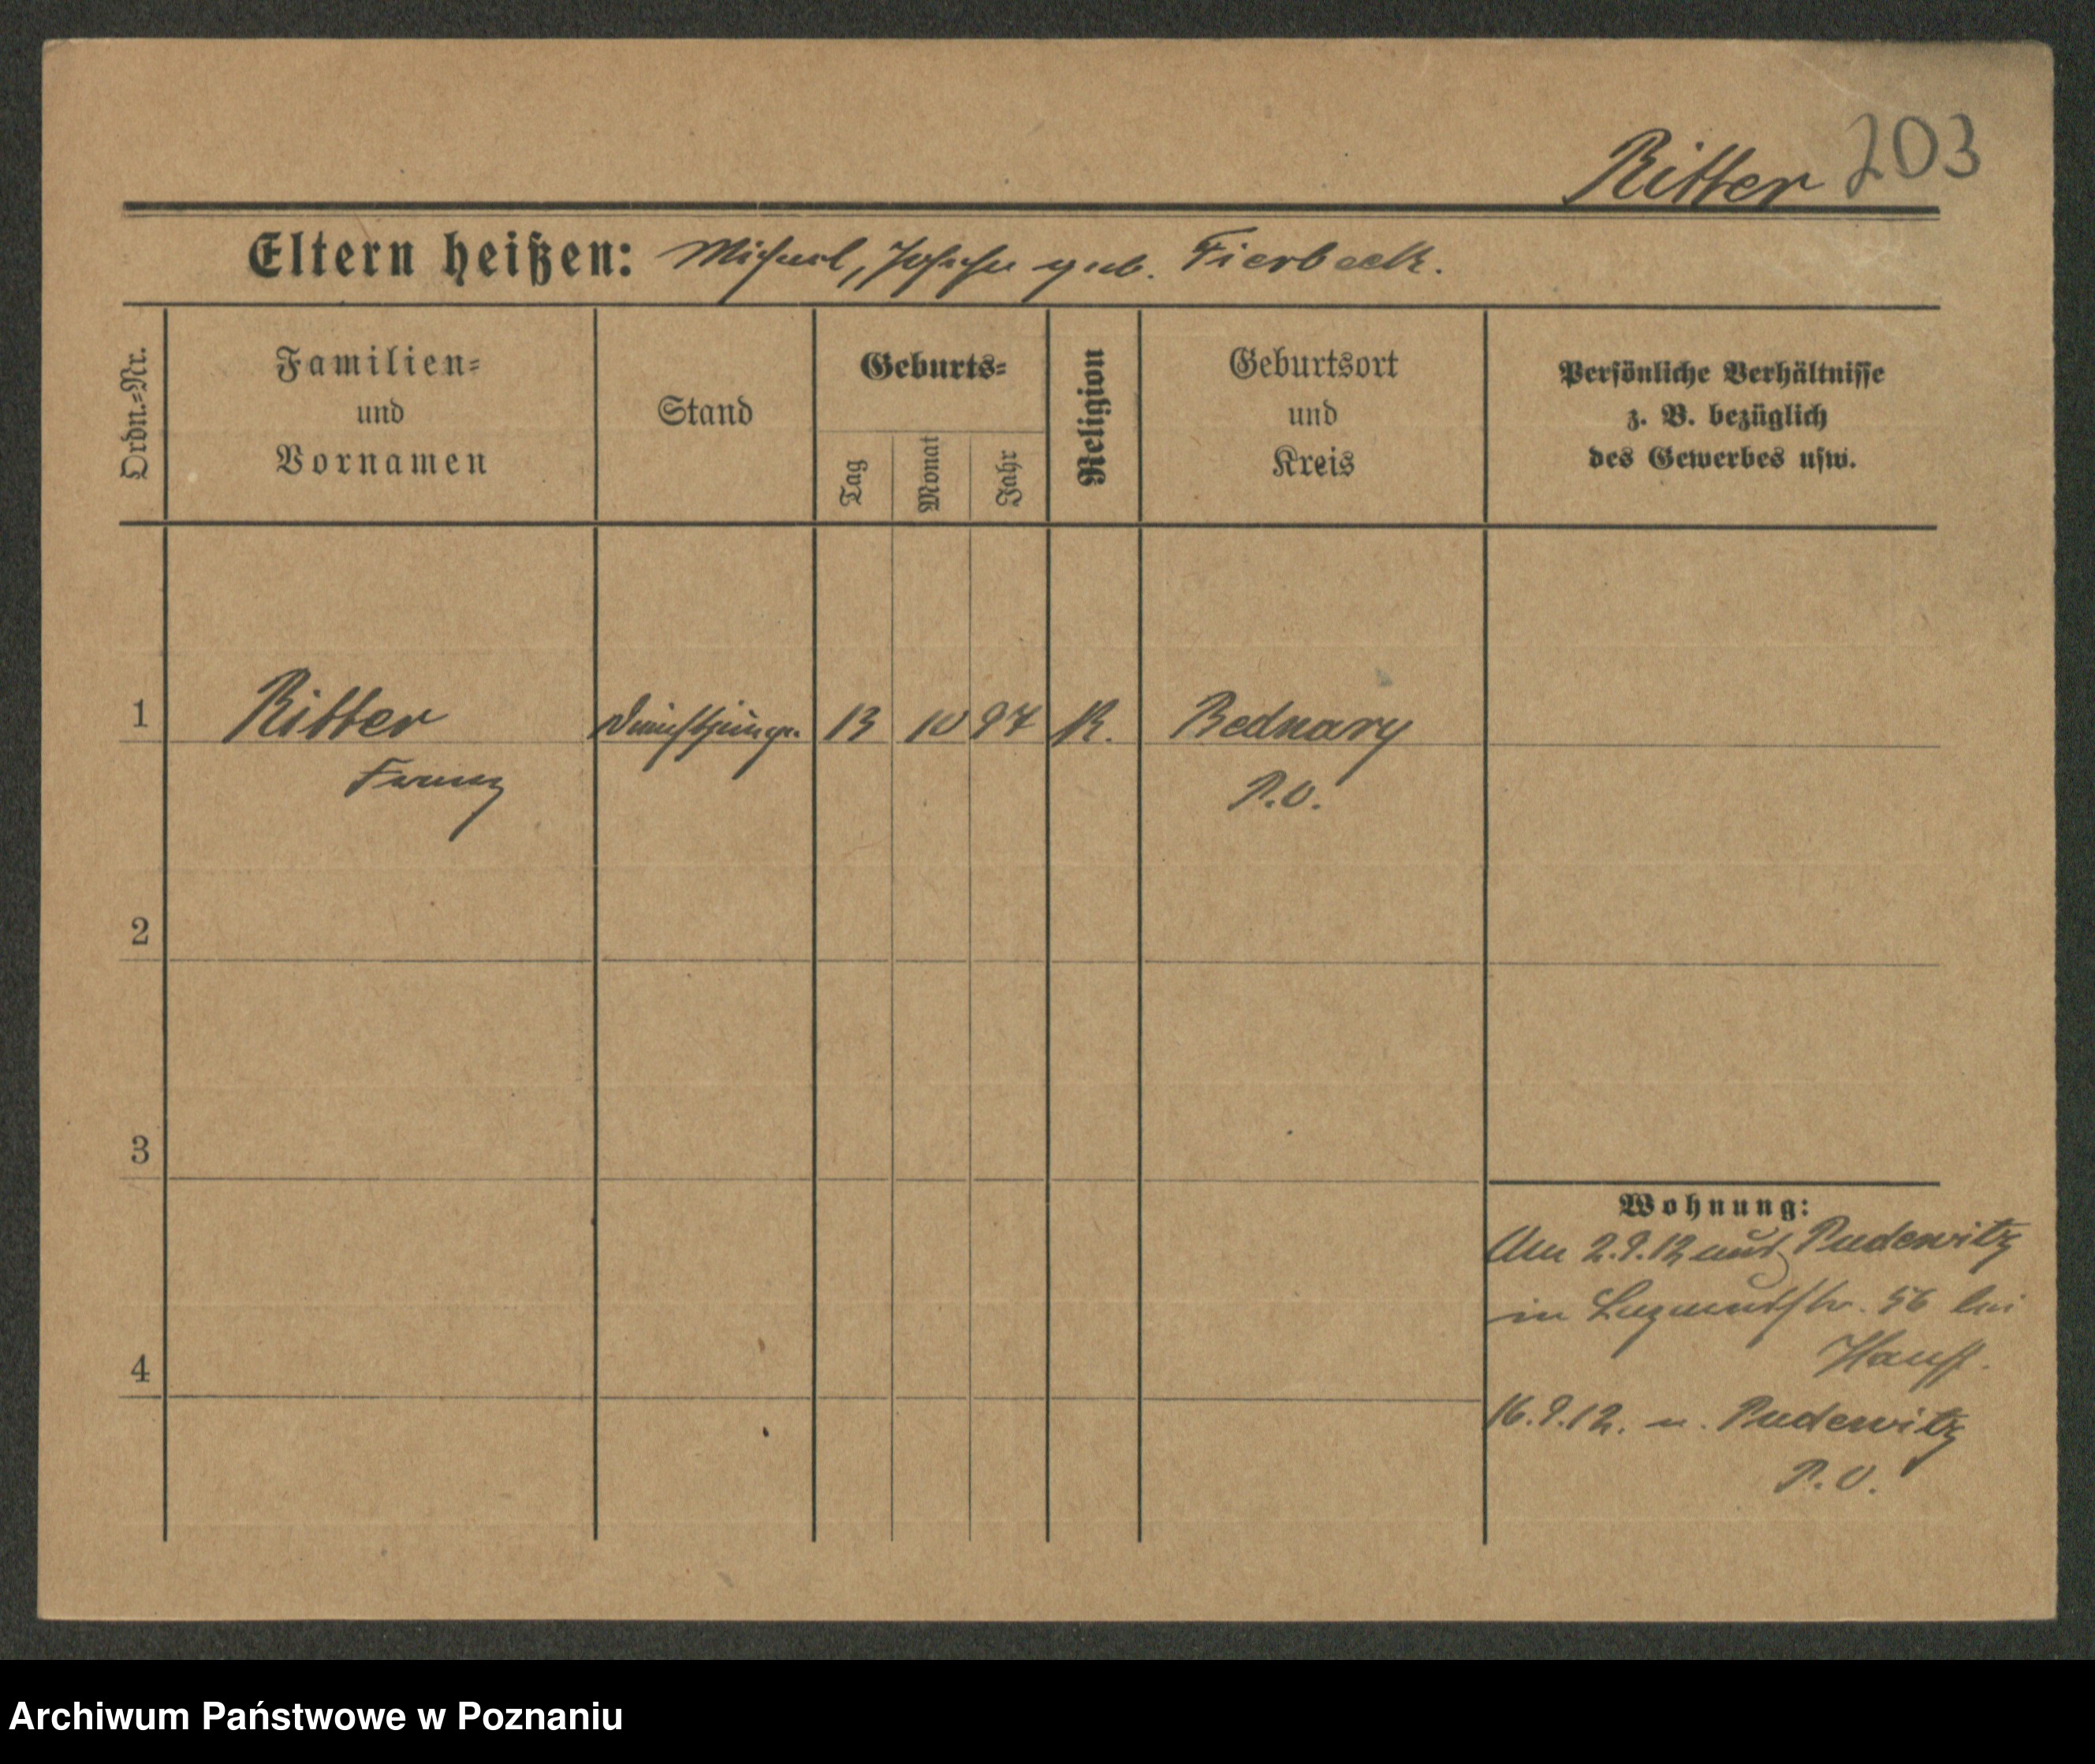 Ritter 203
Eltern heißen: Michael, Josepha geb. Fierbeck.
Ordn.-Nr.
Familien-
und
Vornamen
Stand
Geburts-
Tag
Monat
Jahr
Religion
Geburtsort
und
Kreis
Persönliche Verhältnisse
z. B. bezüglich
des Gewerbes usw.
1 Ritter Dienstjunge. 13 10 97 K. Bednary
Franz P.O.
2
3
4
Wohnung:
Am 2.9.12 aus Pudewitz
in 56 bei
16.9.12. n. Pudewitz
P.O.
Archiwum Państwowe w Poznaniu